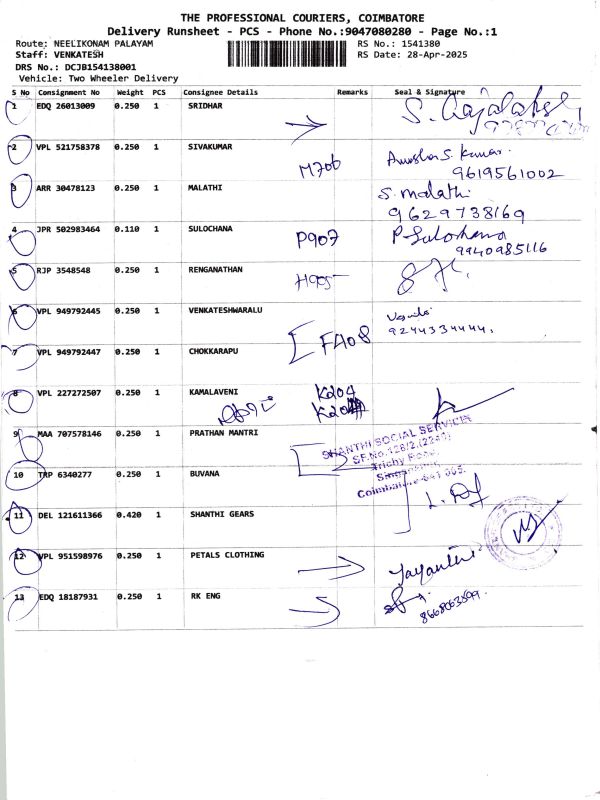 THE PROFESSIONAL COURIERS, COIMBATORE
Delivery Runsheet - PCS - Phone No.:9047080280 - Page No.:1
Route: NEELIKONAM PALAYAM RS No.: 1541380
Staff: VENKATESH RS Date: 28-Apr-2025
DRS No.: DCJB154138001
Vehicle: Two Wheeler Delivery
S No Consignment No Weight PCS Consignee Details Remarks Seal & Signature
1 EDQ 26013009 0.250 1 SRIDHAR
2 VPL 521758378 0.250 1 SIVAKUMAR M706 S. Kumar
9619561002
3 ARR 30478123 0.250 1 MALATHI S. Malathi
9629738169
4 JPR 502983464 0.110 1 SULOCHANA P907 P. Sulochana
9940985116
5 RJP 3548548 0.250 1 RENGANATHAN H905
6 VPL 949792445 0.250 1 VENKATESHWARALU
9244334444
7 VPL 949792447 0.250 1 CHOKKARAPU FA08
8 VPL 227272507 0.250 1 KAMALAVENI K204
9 MAA 707578146 0.250 1 PRATHAN MANTRI SHANTHI SOCIAL SERVICE
Trichy Road,
10 TRP 6340277 0.250 1 BUVANA Coimbatore-641 005.
11 DEL 121611366 0.420 1 SHANTHI GEARS
12 VPL 951598976 0.250 1 PETALS CLOTHING Jayanthi
13 EDQ 18187931 0.250 1 RK ENG